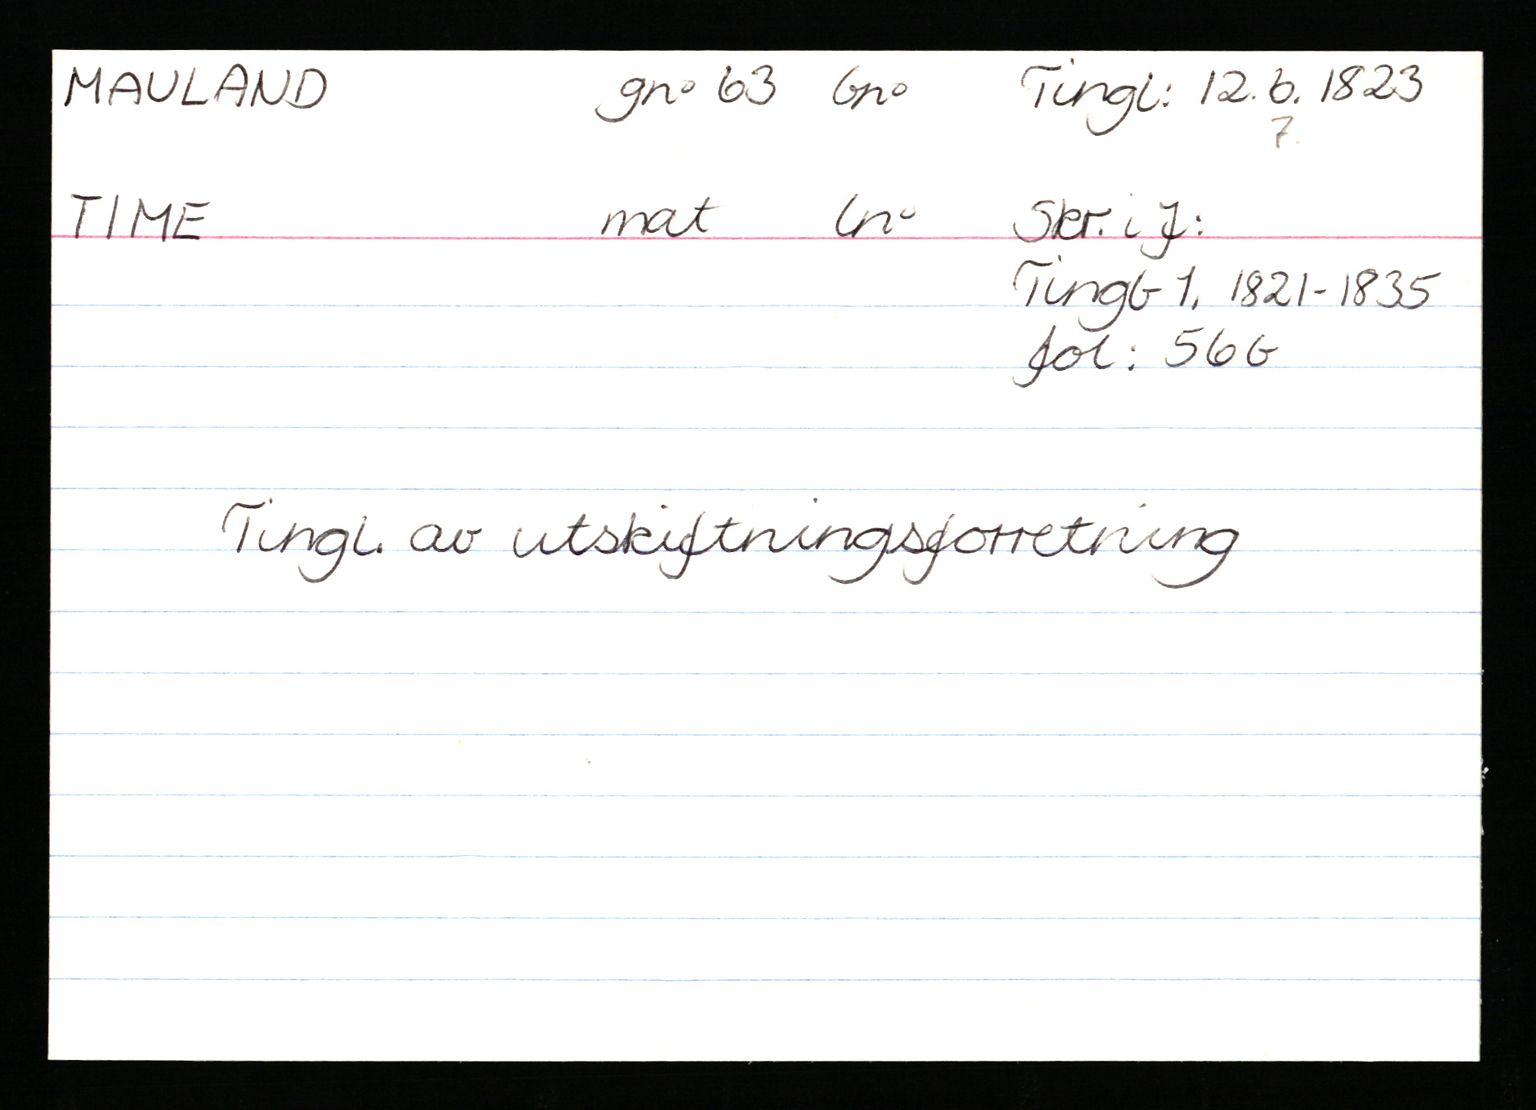 MAULAND gno 63 bno Tingl: 12.6.1823
7.
TIME mat lno Skr. i J:
Tingb 1, 1821-1835
fol: 56b
Tingl. av utskiftningsforretning